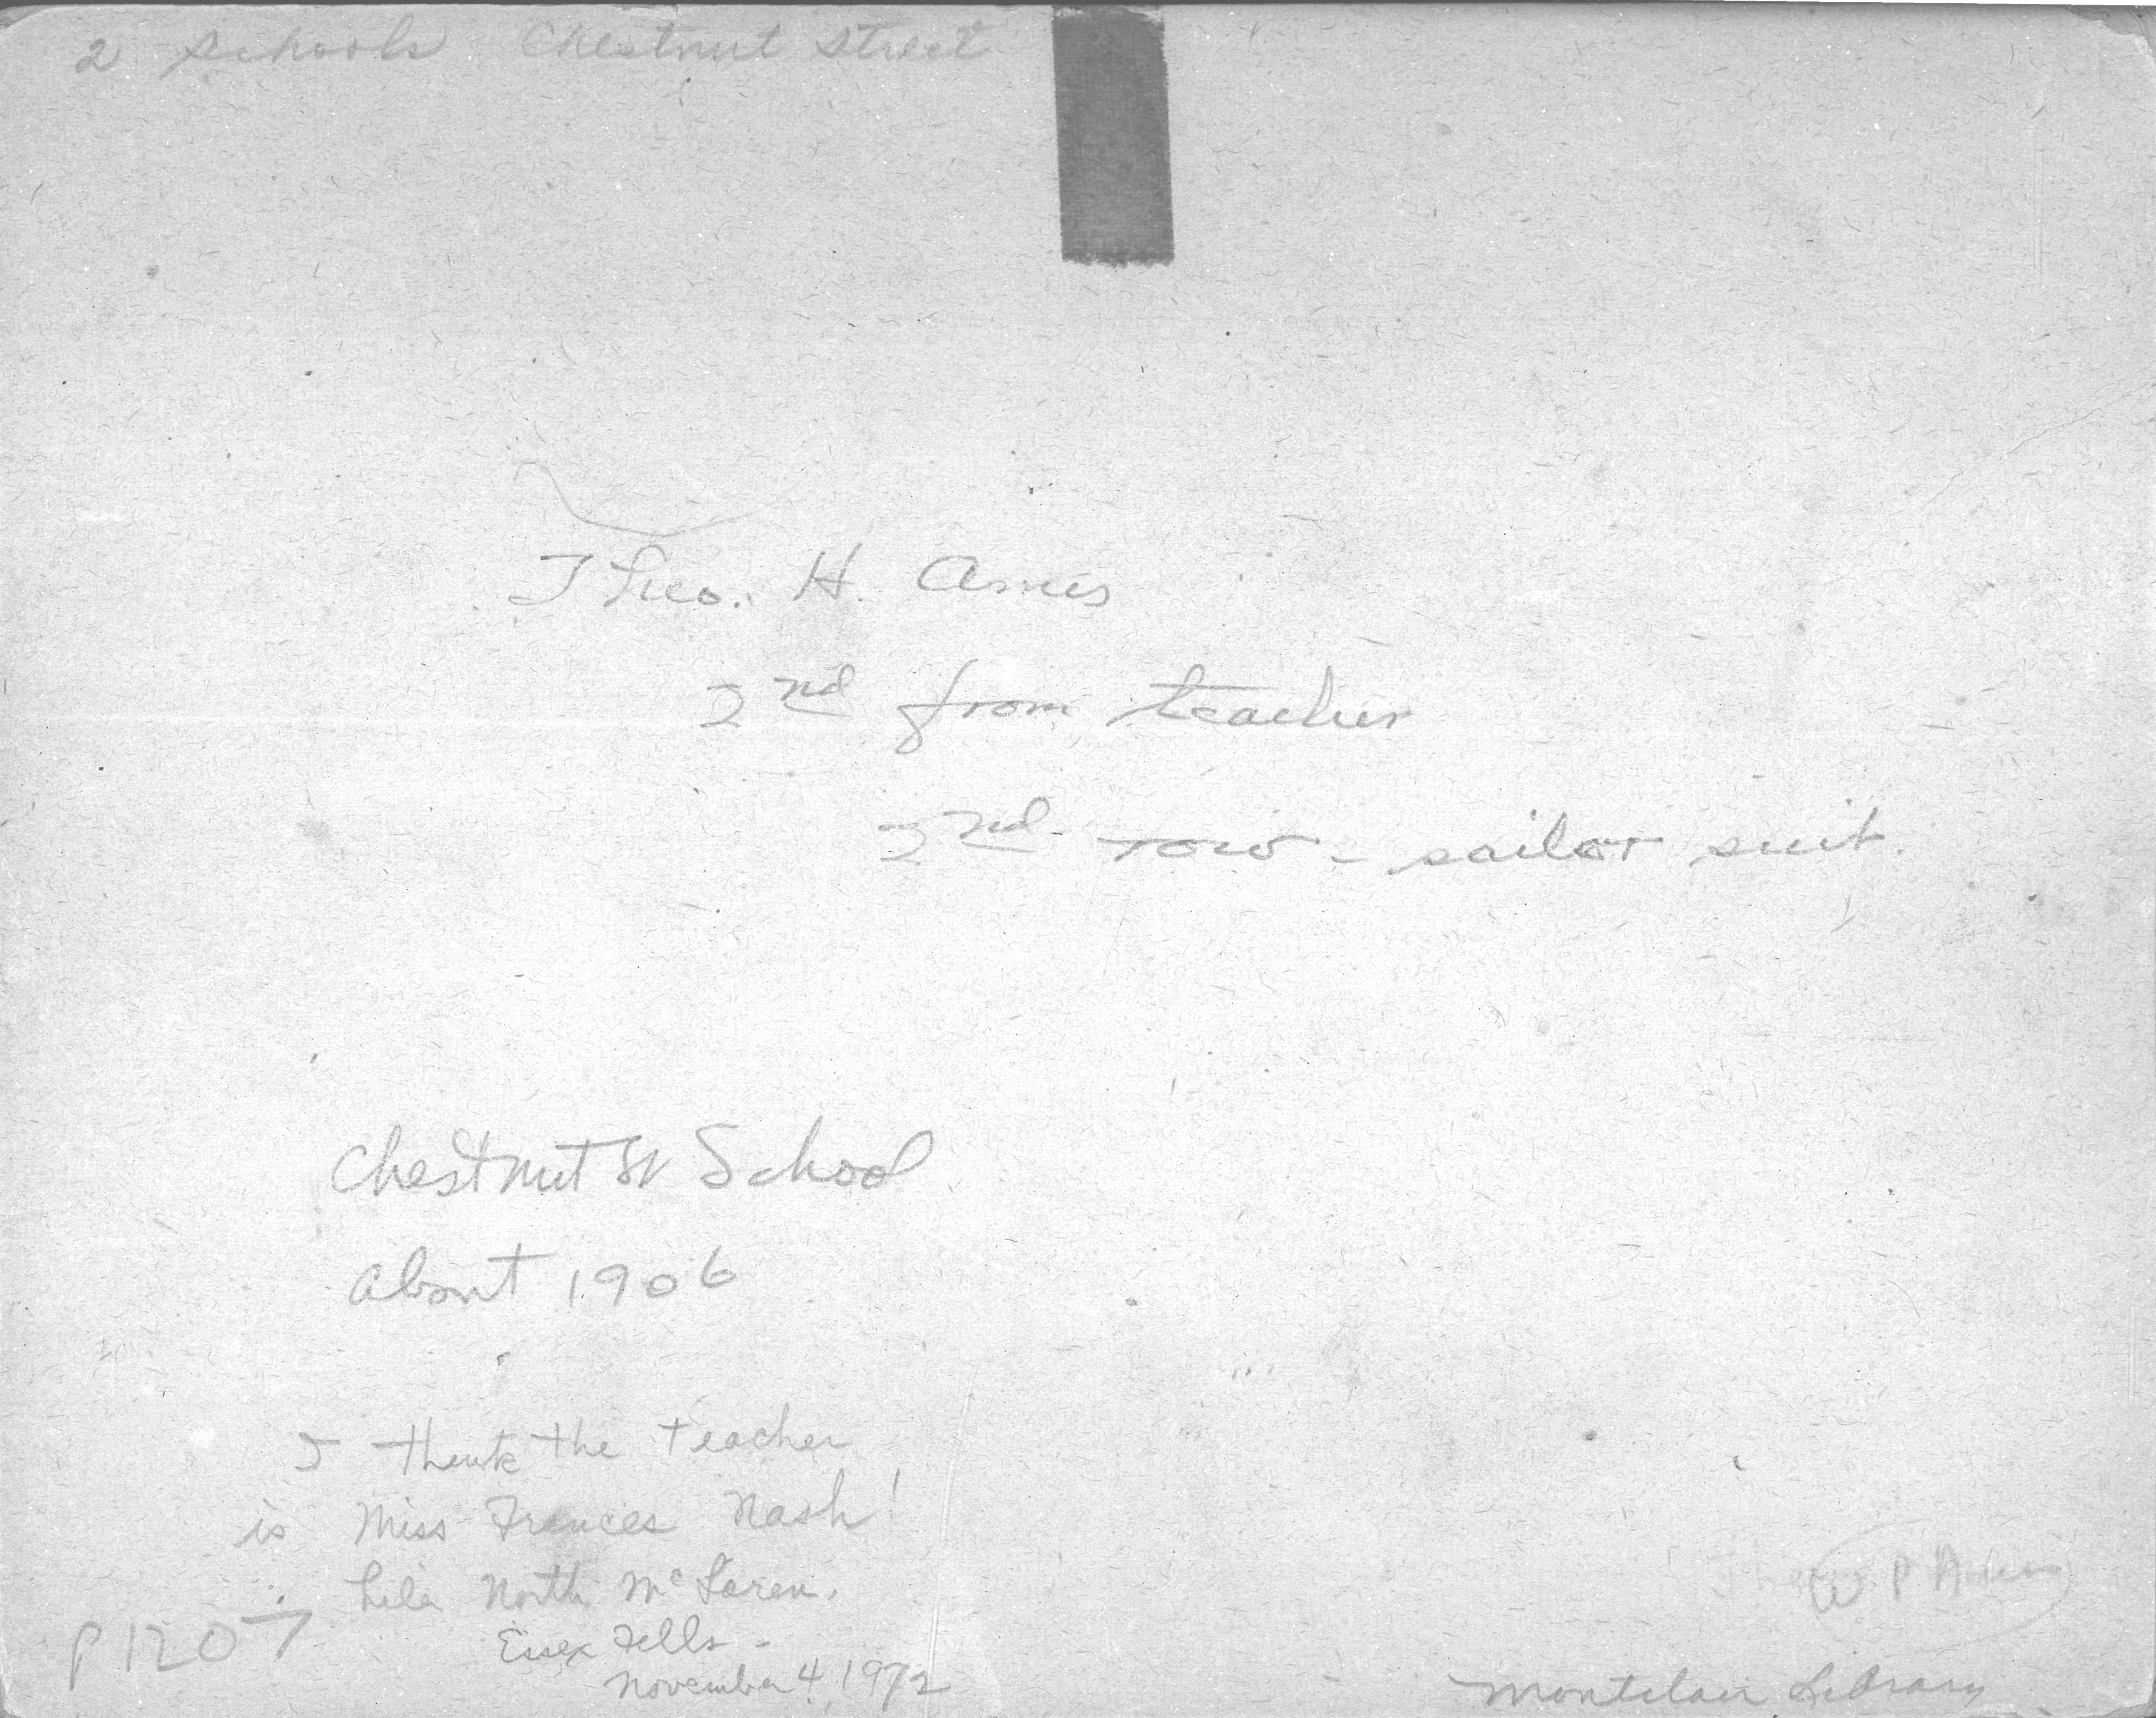 2 Schools Chestnut Street
Theo. H. Ames
2nd from teacher
2nd row - sailor suit.
Chestnut St School
about 1906
I think the teacher
is Miss Frances Nash!
Lela North McLaren.
Essex Fells -
November 4, 1972
P1207
W P A
Montclair Library